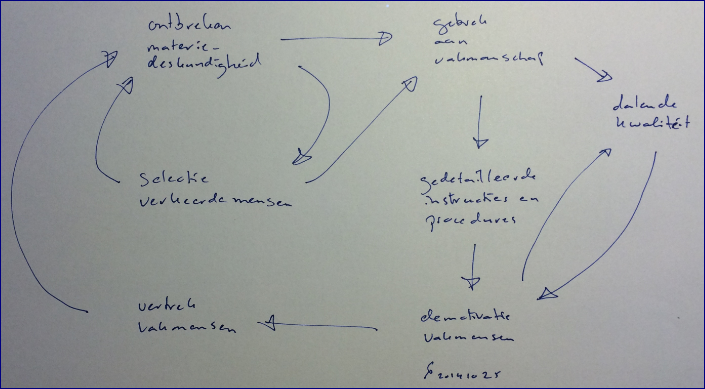 ontbreken
materie-
deskundigheid
gebrek
aan
vakmanschap
dalende
kwaliteit
selectie
verkeerde mensen
gedetailleerde
instructies en
procedures
vertrek
vakmensen
demotivatie
vakmensen
20141025